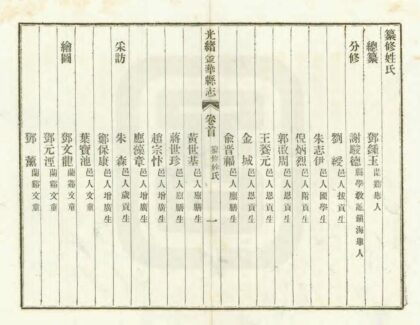 纂修姓氏
總纂
鄧鍾玉 蘭谿舉人
分修
謝駿德 縣學教諭鎮海舉人
劉 邑人拔貢生
朱志伊 邑人國學生
倪炳烈 邑人附貢生
郭啟周 邑人恩貢生
王 元 邑人恩貢生
金城 邑人恩貢生
俞晉福 邑人廩膳生
光緒金華縣志
卷首
纂修姓氏
一
黃世基 邑人廩膳生
蔣世珍 邑人廩膳生
趙宗 邑人增廣生
應藻章 邑人增廣生
采訪
朱森 邑人歲貢生
鄭保康 邑人增廣生
葉寶池 邑人文童
繪圖
鄧文龍 蘭谿文童
鄧元 蘭谿文童
鄧薰 蘭谿文童